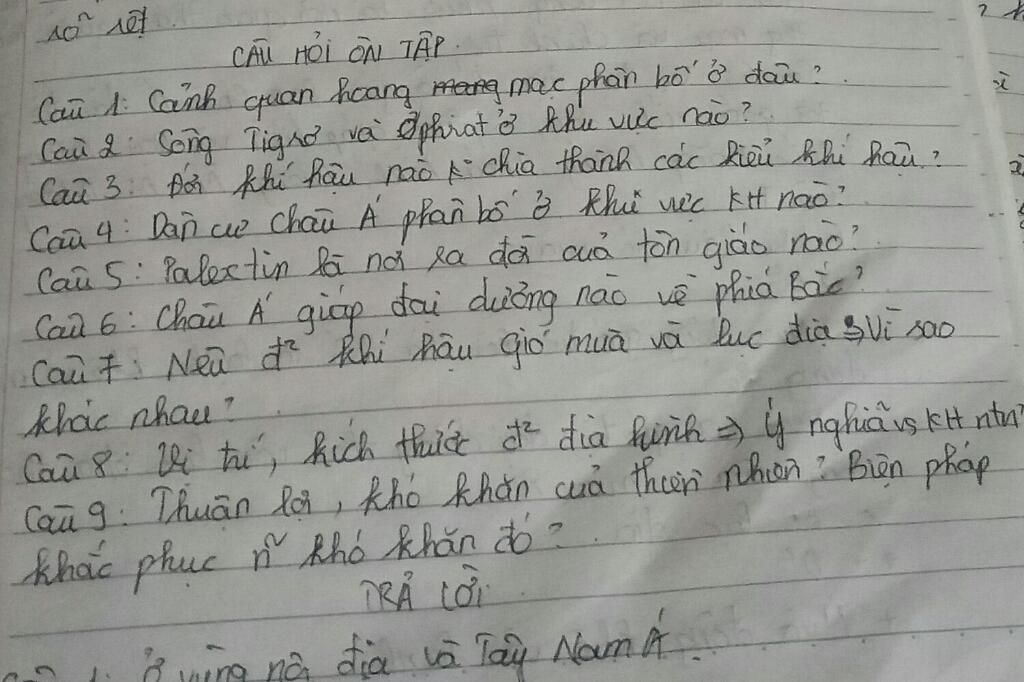 rõ rệt
CÂU HỎI ÔN TẬP.
Câu 1: Cảnh quan hoang mang mạc phân bố ở đâu?
Câu 2: Sông Tigrơ và Ơphrat ở khu vực nào?
Câu 3: Đới khí hậu nào k chia thành các kiểu khí hậu?
Câu 4: Dân cư Châu Á phân bố ở khu vực KH nào?
Câu 5: Palextin là nơi ra đời của tôn giáo nào?
Câu 6: Châu Á giáp đại dương nào về phía Bắc?
Câu 7: Nêu đ² khí hậu gió mùa và lục địa Vì sao
khác nhau?
Câu 8: Vị trí, kích thước đ² địa hình => Ý nghĩa vs KH ntn?
Câu 9: Thuận lợi, khó khăn của thiên nhiên? Biện pháp
khắc phục n~ khó khăn đó?
TRẢ LỜI.
1: Ở vùng nội địa và Tây Nam Á.